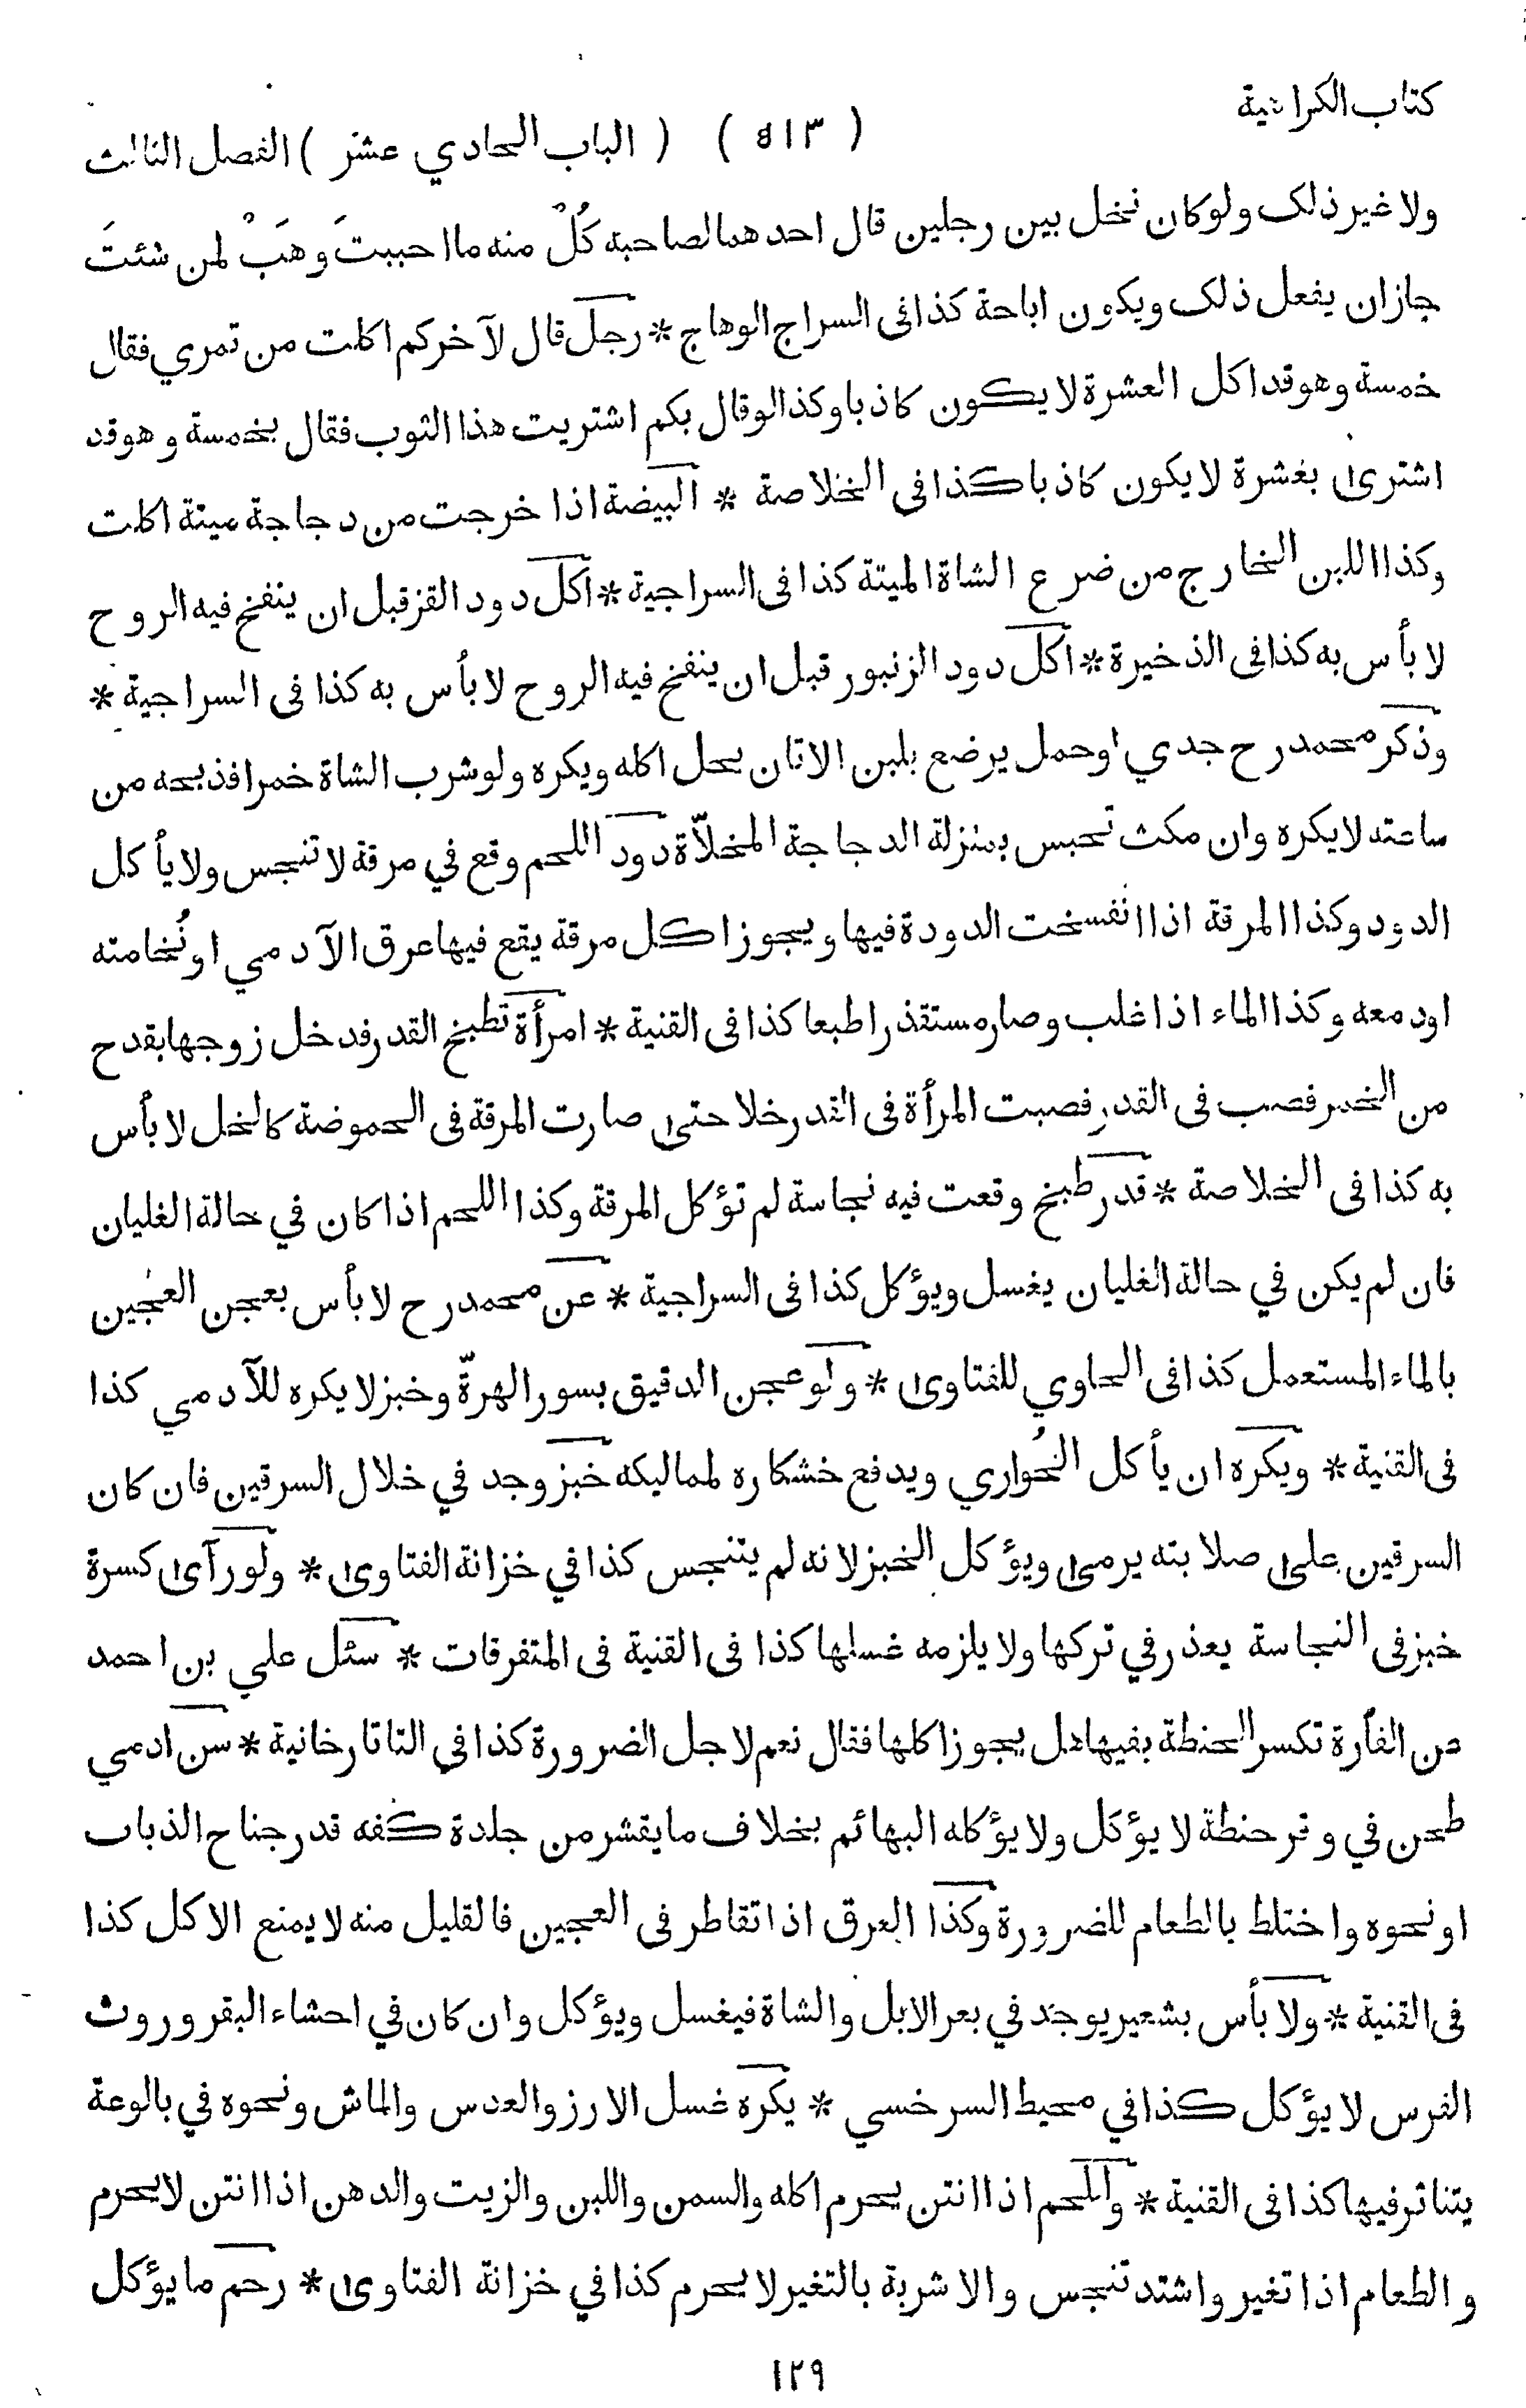 كتاب الكراهية
( ٥١٣ ) ( الباب الحادي عشر ) الفصل الثالث
ولا غير ذلك ولو كان نخل بين رجلين قال احدهما لصاحبه كُلْ منه ما احببتَ وهَبْ لمن شئتَ
جاز ان يفعل ذلك ويكون اباحة كذا فى السراج الوهاج * رجل قال لآخر كم اكلت من تمري فقال
خمسة وهو قد اكل العشرة لا يكون كاذبا وكذا لو قال بكم اشتريت هذا الثوب فقال بخمسة وهو قد
اشترى بعشرة لا يكون كاذبا كذا فى الخلاصة * البيضة اذا خرجت من دجاجة ميتة اكلت
وكذا اللبن الخارج من ضرع الشاة الميتة كذا فى السراجية * اكل دود القز قبل ان ينفخ فيه الروح
لا بأس به كذا فى الذخيرة * اكل دود الزنبور قبل ان ينفخ فيه الروح لا بأس به كذا فى السراجية *
وذكر محمد رح جدي او حمل يرضع بلبن الاتان يحل اكله ويكره ولو شرب الشاة خمرا فذبحه من
ساعته لا يكره وان مكث تحبس بمنزلة الدجاجة المخلاّة دود اللحم وقع في مرقة لا تنجس ولا يأكل
الدود وكذا المرقة اذا انفسخت الدودة فيها ويجوز اكل مرقة يقع فيها عرق الآدمي او نُخامته
او دمعه وكذا الماء اذا غلب وصار مستقذرا طبعا كذا فى القنية * امرأة تطبخ القدر فدخل زوجها بقدح
من الخمر فصب فى القدر فصبت المرأة فى القدر خلا حتى صارت المرقة فى الحموضة كالخل لا بأس
به كذا فى الخلاصة * قدر طبخ وقعت فيه نجاسة لم تؤكل المرقة وكذا اللحم اذا كان في حالة الغليان
فان لم يكن في حالة الغليان يغسل ويؤكل كذا فى السراجية * عن محمد رح لا بأس بعجن العجين
بالماء المستعمل كذا فى الحاوي للفتاوى * ولو عجن الدقيق بسور الهرّة وخبز لا يكره للآدمي كذا
فى القنية * ويكره ان يأكل الحُواري ويدفع خشكاره لمماليكه خبز وجد في خلال السرقين فان كان
السرقين على صلابته يرمى ويؤكل الخبز لانه لم يتنجس كذا في خزانة الفتاوى * ولو رآى كسرة
خبز فى النجاسة يعذر في تركها ولا يلزمه غسلها كذا فى القنية فى المتفرقات * سئل علي بن احمد
من الفأرة تكسر الحنطة بفيها هل يجوز اكلها فقال نعم لاجل الضرورة كذا في التاتارخانية * سن ادمي
طحن في وقر حنطة لا يؤكل ولا يؤكله البهائم بخلاف ما يقشر من جلدة كفه قدر جناح الذباب
او نحوه واختلط بالطعام للضرورة وكذا العرق اذا تقاطر فى العجين فالقليل منه لا يمنع الاكل كذا
فى القنية * ولا بأس بشعير يوجد في بعر الابل والشاة فيغسل ويؤكل وان كان في احشاء البقر وروث
الفرس لا يؤكل كذا في محيط السرخسي * يكره غسل الارز والعدس والماش ونحوه في بالوعة
يتناثر فيها كذا فى القنية * واللحم اذا انتن يحرم اكله والسمن واللبن والزيت والدهن اذا انتن لا يحرم
والطعام اذا تغير واشتد تنجس والاشربة بالتغير لا يحرم كذا في خزانة الفتاوى * رحم ما يؤكل
١٢٩